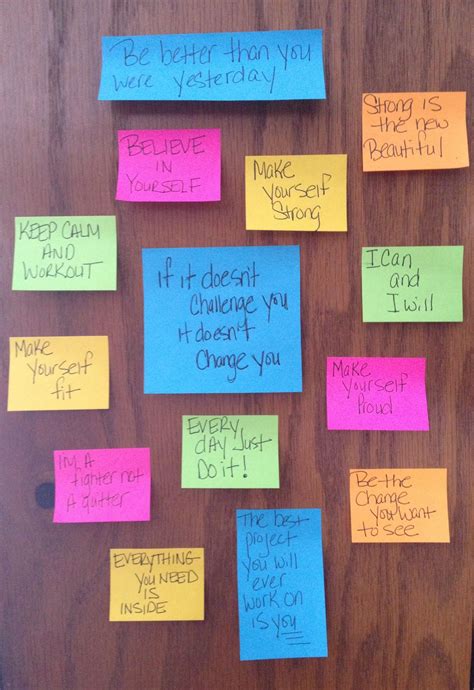 Be better than you
were yesterday
Strong is
the new
Beautiful
BELIEVE
IN
YOURSELF
Make
yourself
Strong
KEEP CALM
AND
WORKOUT
If it doesn't
Challenge you
It doesn't
Change you
I Can
and
I Will
Make
Yourself
fit
Make
Yourself
Proud
EVERY
day Just
Do it!
I'm A
fighter not
A quitter
Be the
Change
you want
to see
The best
project
you will
ever
work on
is you
EVERYTHING
YOU NEED
IS
INSIDE